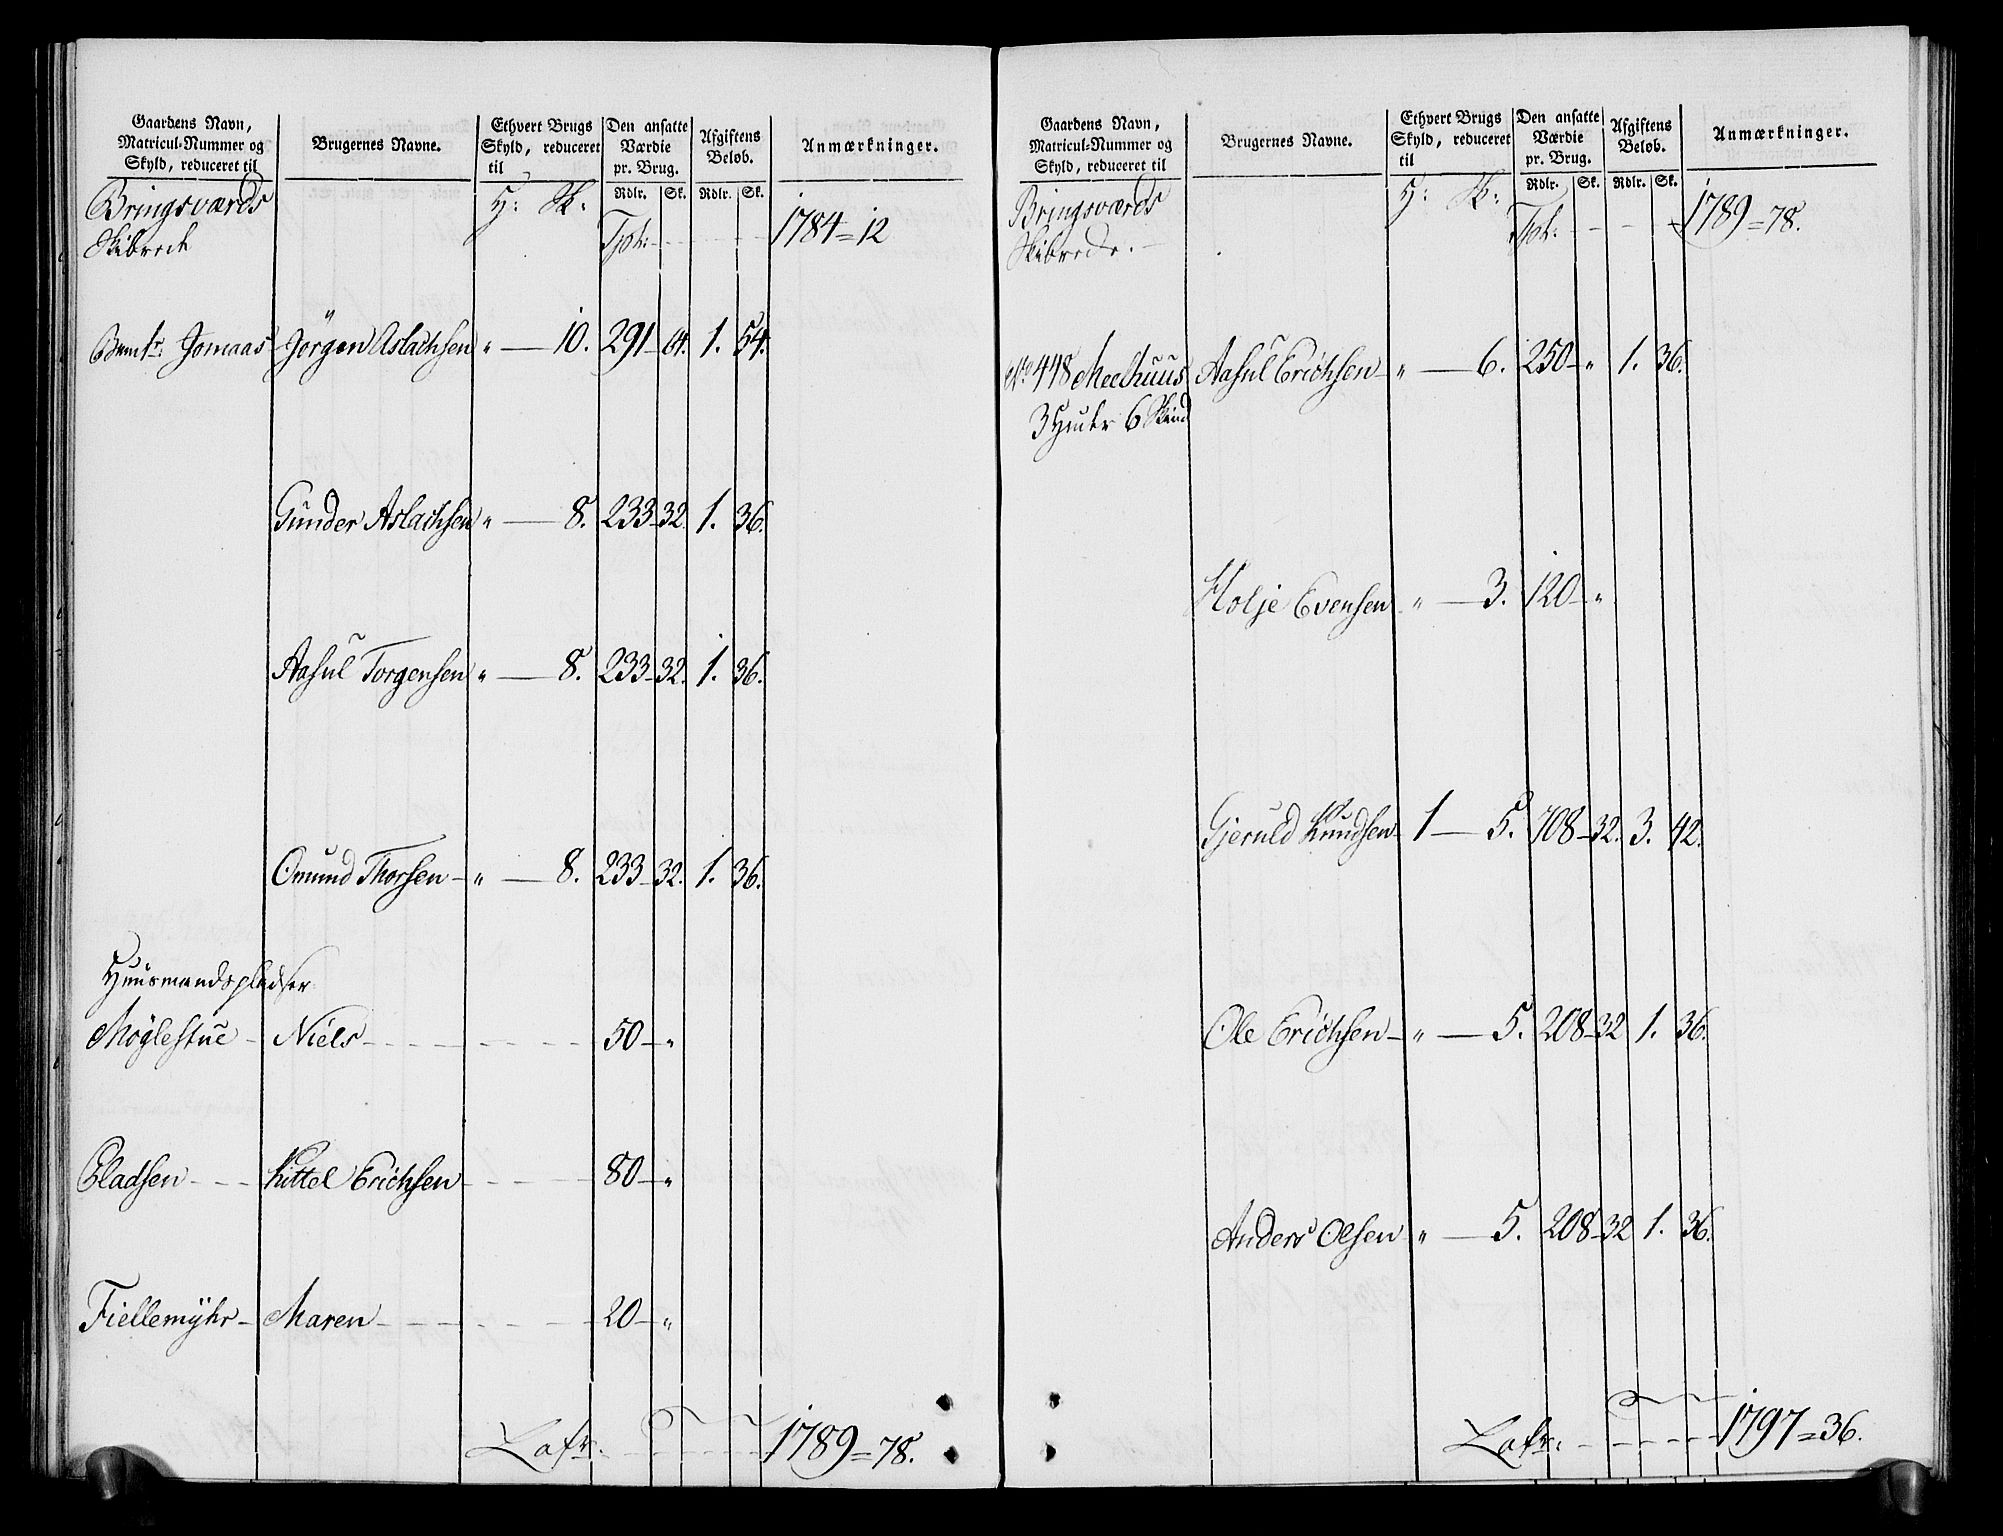 Gaardens Navn,
Matricul-Nummer og
Skyld, reduceret til
Brugernes Navne.
Ethvert Brugs
Skyld, reduceret
til
Den ansatte
Værdie
pr. Brug.
Afgiftens
Beløb.
Anmærkninger.
Rdlr. Sk. Rdlr. Sk.
Bringsværds H: Sk:
Skibrede Tpt: 1784=12
Jomaas Jörgen Aslachsen " — 10. 291 64. 1. 54.
Gunder Aslachsen " — 8. 233 32. 1. 36.
Aasül Torgensen " — 8. 233 32. 1. 36.
Omund Thorsen " — 8. 233 32. 1. 36.
Huusmandspladser
Möglestue Niels 50 "
Pladsen Kittel Erichsen 80 "
Fiellemÿhr Maren 20 "
Lats: 1789=78.
Gaardens Navn,
Matricul-Nummer og
Skyld, reduceret til
Brugernes Navne.
Ethvert Brugs
Skyld, reduceret
til
Den ansatte
Værdie
pr. Brug.
Afgiftens
Beløb.
Anmærkninger.
Rdlr. Sk. Rdlr. Sk.
Bringsværds H: Sk:
Skibrede. Tpt: 1789=78.
No 448 Meelhuus Aasül Erichsen " — 6. 250 " 1. 36.
3 Huder 6 Skind
Holje Evensen " — 3. 120 "
Gjeruld Knudsen 1 — 5. 708 32. 3. 42.
Ole Erichsen " — 5. 208 32 1. 36.
Anders Olsen " — 5. 208 32 1. 36.
Lats: 1797=36.